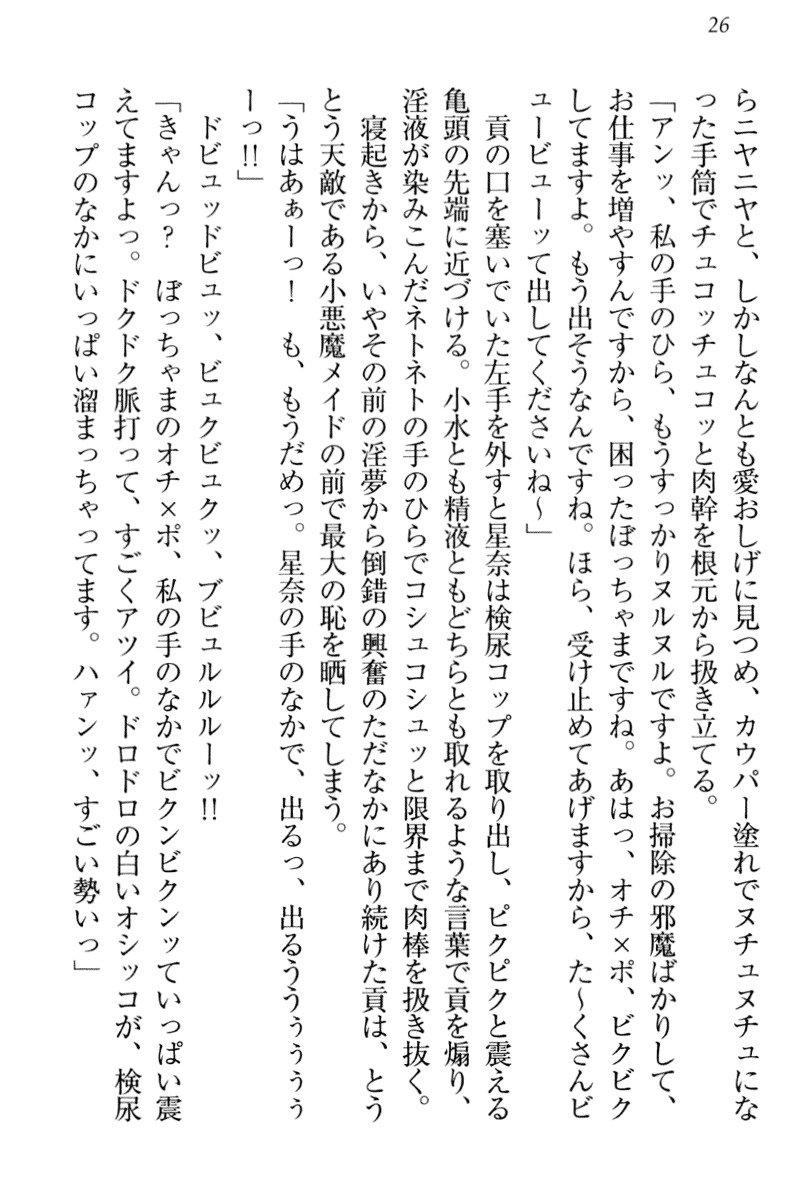 26
らニヤニヤと、しかしなんとも愛おしげに見つめ、カウパー塗れでヌチュヌチュにな
った手筒でチュコッチュコッと肉幹を根元から扱き立てる。
「アンッ、私の手のひら、もうすっかりヌルヌルですよ。お掃除の邪魔ばかりして、
お仕事を増やすんですから、困ったぼっちゃまですね。あはっ、オチ×ポ、ビクビク
してますよ。もう出そうなんですね。ほら、受け止めてあげますから、た〜くさんビ
ュービューッて出してくださいね〜」
貢の口を塞いでいた左手を外すと星奈は検尿コップを取り出し、ピクピクと震える
亀頭の先端に近づける。小水とも精液ともどちらとも取れるような言葉で貢を煽り、
淫液が染みこんだネトネトの手のひらでコシュコシュッと限界まで肉棒を扱き抜く。
寝起きから、いやその前の淫夢から倒錯の興奮のただなかにあり続けた貢は、とう
とう天敵である小悪魔メイドの前で最大の恥を晒してしまう。
「うはあぁーっ！　も、もうだめっ。星奈の手のなかで、出るっ、出るうぅぅぅぅぅ
ーっ!!」
ドビュッドビュッ、ビュクビュクッ、ブビュルルルーッ!!
「きゃんっ？　ぼっちゃまのオチ×ポ、私の手のなかでビクンビクンッていっぱい震
えてますよっ。ドクドク脈打って、すごくアツイ。ドロドロの白いオシッコが、検尿
コップのなかにいっぱい溜まっちゃってます。ハァンッ、すごい勢いっ」